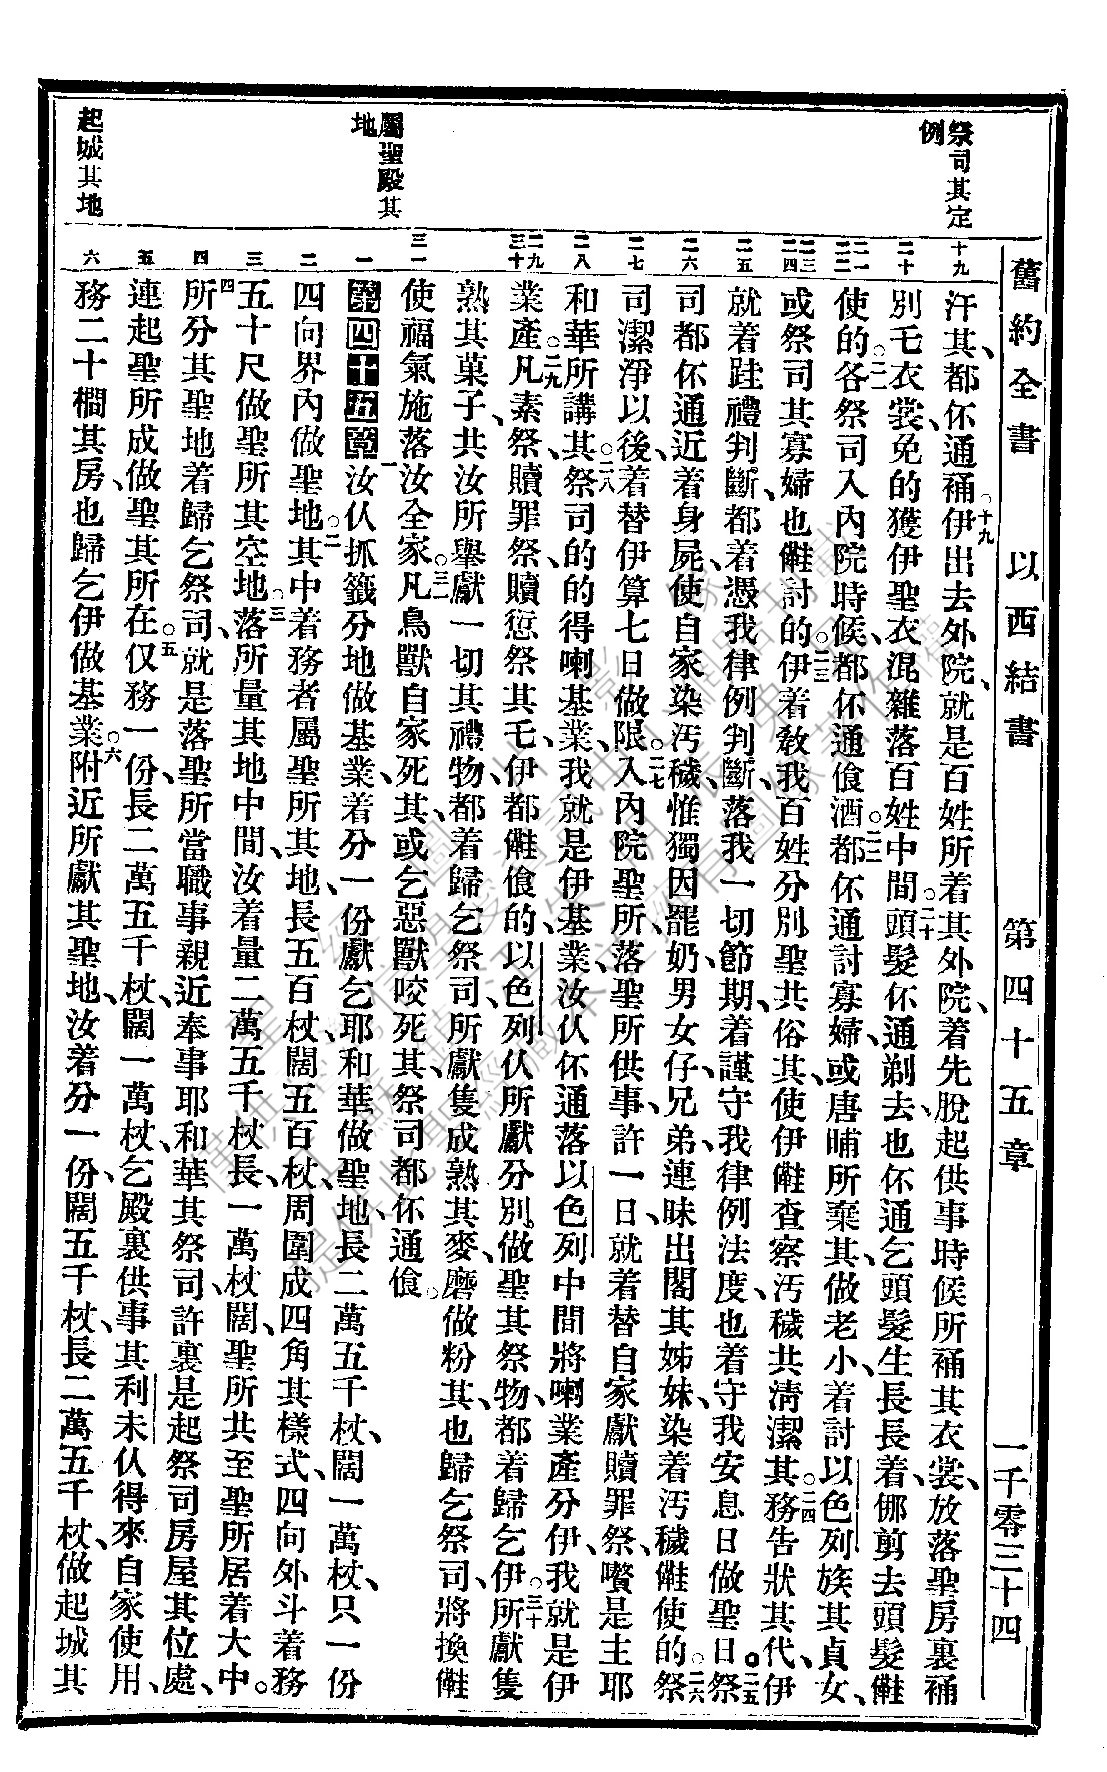 舊約全書　以西結書　第四十五章　一千零三十四
祭司其定例
屬聖殿其地
起城其地
十九
二十
二一 二二
二三 二四
二五
二六
二七
二八
二九 三十
三一
一
二
三
四
五
六
汗其、都伓通䘄。○十九伊出去外院、就是百姓所着其外院、着先脫起供事時候所䘄其衣裳、放落聖房裏䘄
別乇衣裳、免的獲伊聖衣混雜落百姓中間。○二十頭髮伓通剃去、也伓通乞頭髮生長長、着㑚剪去頭髮
使的。○二一各祭司入內院時候、都伓通食酒。○二二都伓通討寡婦、或唐晡所棄其、做老小、着討以色列族其貞女、
或祭司其寡婦、也討的。○二三伊着敎我百姓分別聖共俗其、使伊查察汚穢共淸潔其。○二四務告狀其代、伊
就着跬禮判斷、都着憑我律例判斷、落我一切節期、着謹守我律例法度、也着守我安息日做聖日。○二五祭
司都伓通近着身屍、使自家染汚穢、惟獨因罷奶男女仔、兄弟、連昧出閣其姊妹、染着汚穢使的。○二六祭
司潔淨以後、着替伊算七日做限。○二七入內院聖所、落聖所供事、許一日、就着替自家獻贖罪祭、嚽是主耶
和華所講其。○二八祭司的的得喇基業、我就是伊基業、汝仈伓通落以色列中間將喇業產分伊、我就是伊
業產。○二九凡素祭、贖罪祭、贖愆祭其乇、伊都食的、以色列仈所獻分別做聖其祭物、都着歸乞伊。○三十所獻隻
熟其菓子、共汝所舉獻一切其禮物、都着歸乞祭司、所獻隻成熟其麥、磨做粉其、也歸乞祭司、將換
使福氣施落汝全家。○三一凡鳥獸自家死其、或乞惡獸咬死其、祭司都伓通食。○
第四十五章　一汝仈抓籤分地做基業、着分一份獻乞耶和華做聖地、長二萬五千杖、闊一萬杖、只一份
四向界內做聖地。○二其中着務者屬聖所其地、長五百杖、闊五百杖、周圍成四角其樣式、四向外斗着務
五十尺做聖所其空地。○三落所量其地中間、汝着量二萬五千杖長、一萬杖闊、聖所共至聖所居着大中。○
四所分其聖地、着歸乞祭司、就是落聖所當職事、親近奉事耶和華其祭司、許裏是起祭司房屋其位處、
連起聖所成做聖其所在。○五仅務一份、長二萬五千杖、闊一萬杖、乞殿裏供事其利未仈得來自家使用、
務二十櫚其房、也歸乞伊做基業。○六附近所獻其聖地、汝着分一份、闊五千杖、長二萬五千杖、做起城其